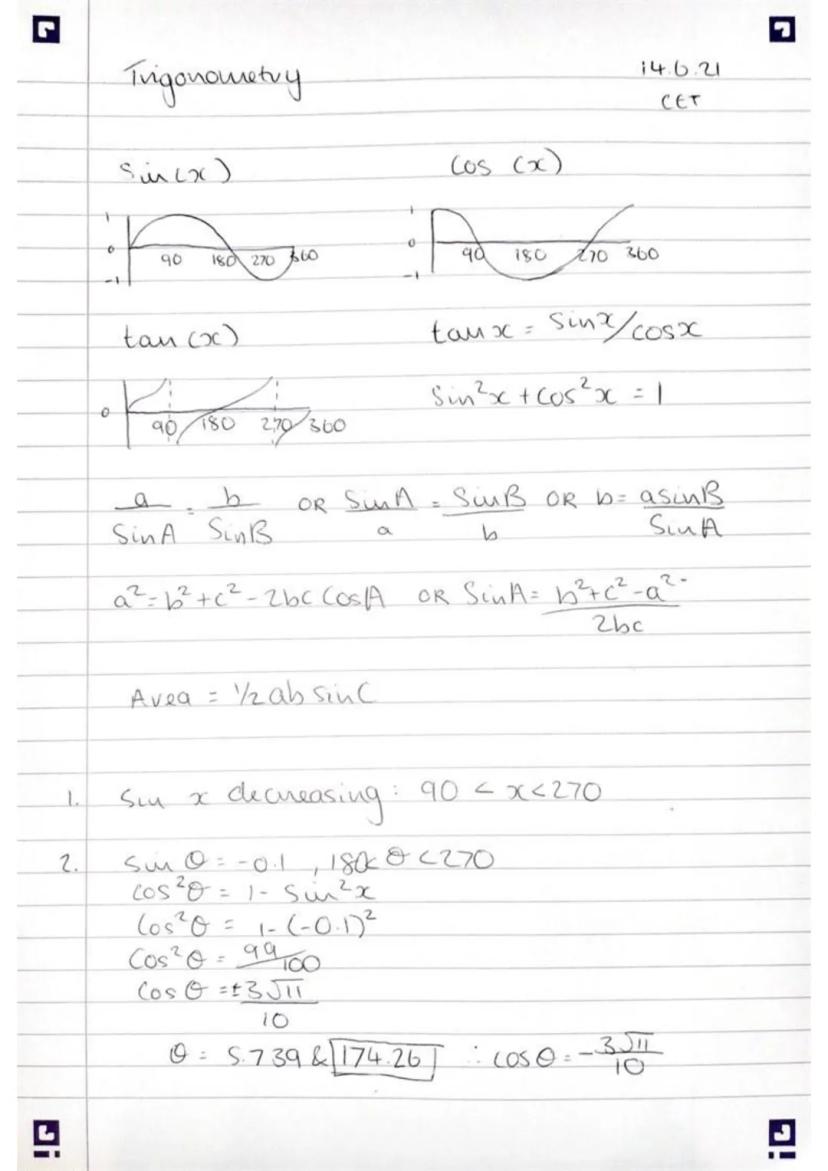 Trigonometry 14.6.21
CET
Sin(x) Cos (x)
1 1
0 90 180 270 360 0 90 180 270 360
-1 -1
tan(x) tan x = sinx/cosx
sin²x + cos²x = 1
0 90 180 270 360
a/SinA = b/SinB OR SinA/a = SinB/b OR b = asinB/SinA
a² = b² + c² - 2bc CosA OR SinA = b²+c²-a²/2bc
Area = 1/2 ab sinC
1. Sin x decreasing: 90 < x < 270
2. sin θ = -0.1, 180< θ <270
cos²θ = 1 - Sin²x
Cos²θ = 1-(-0.1)²
Cos²θ = 99/100
Cos θ = ±3√11/10
θ = 5.739 & 174.26 ∴ cos θ = -3√11/10